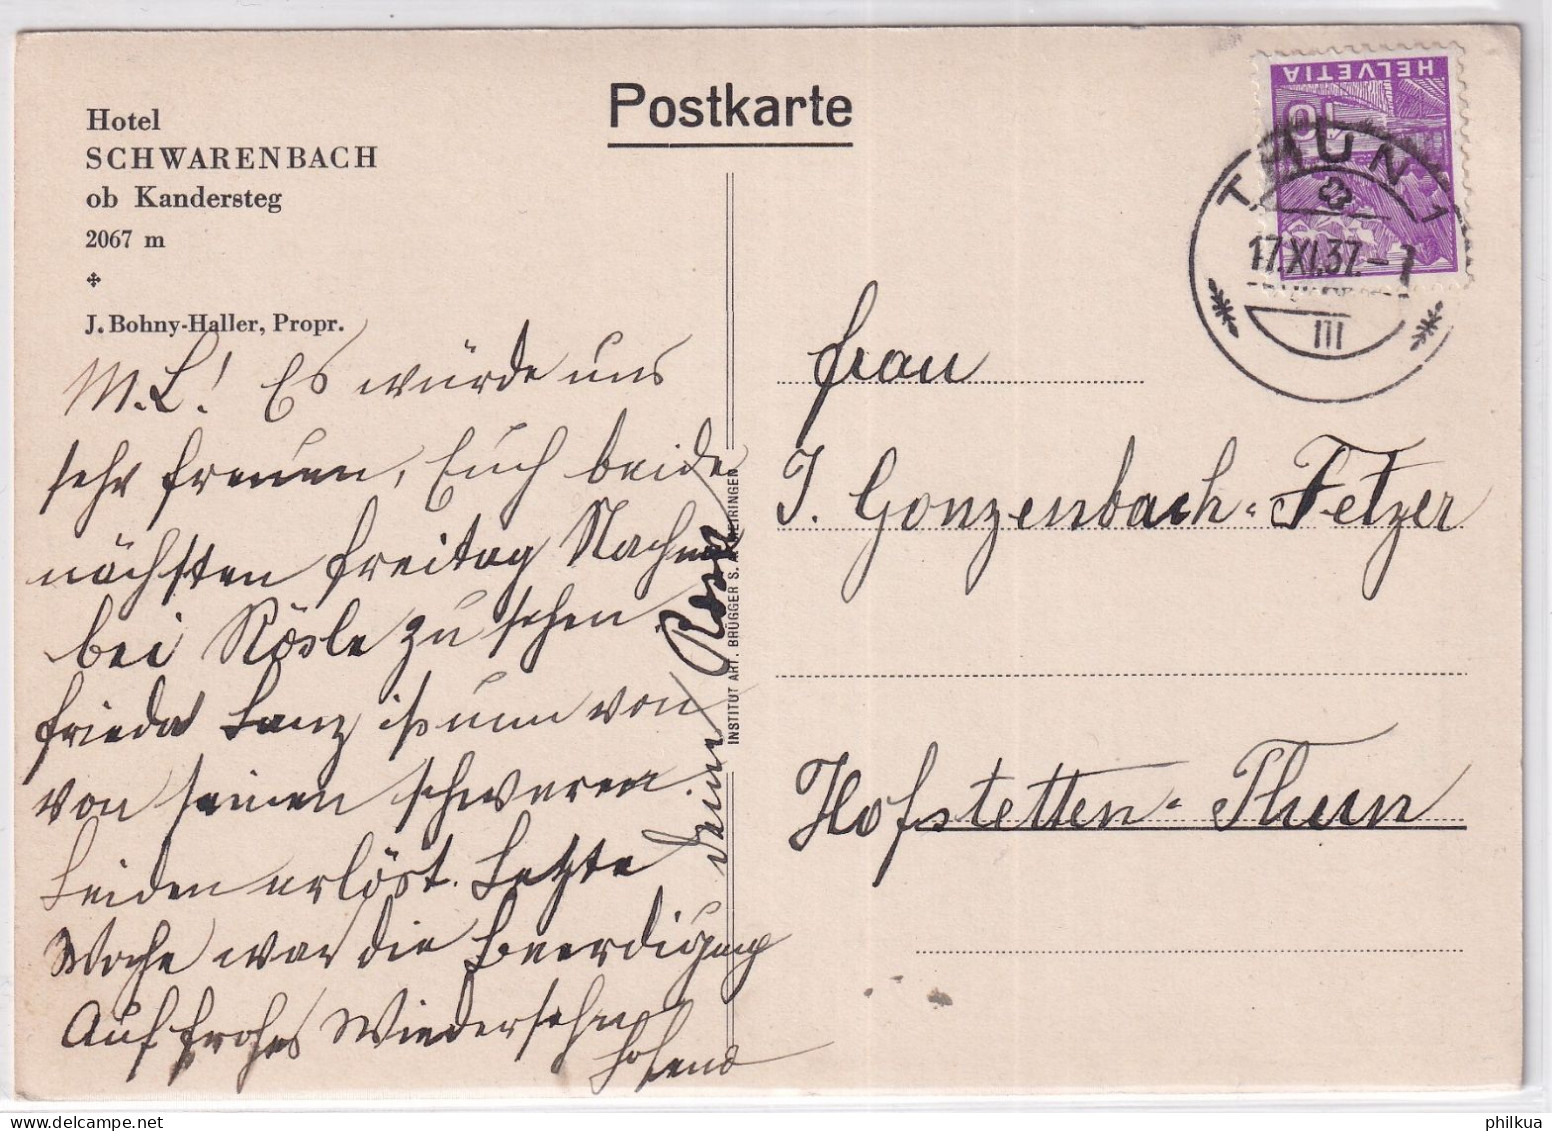 Postkarte
Hotel
SCHWARENBACH
ob Kandersteg
2067 m
J. Bohny-Haller, Propr.
M. L! Es würde uns
sehr freuen, Euch beide
nächsten Freitag Nachm
bei Rösle zu sehen.
Frieda Lanz ist nun von
von seinen schweren
Leiden erlöst. Letzte
Woche war die Beerdigung
Auf frohes Wiedersehn
hoffend
Deine Rosa
INSTITUT ART. BRÜGGER S. A. MEIRINGEN
HELVETIA
10
THUN 1
17.XI.37.-
III
Frau
J. Gonzenbach-Fetzer
Hofstetten-Thun
philkua